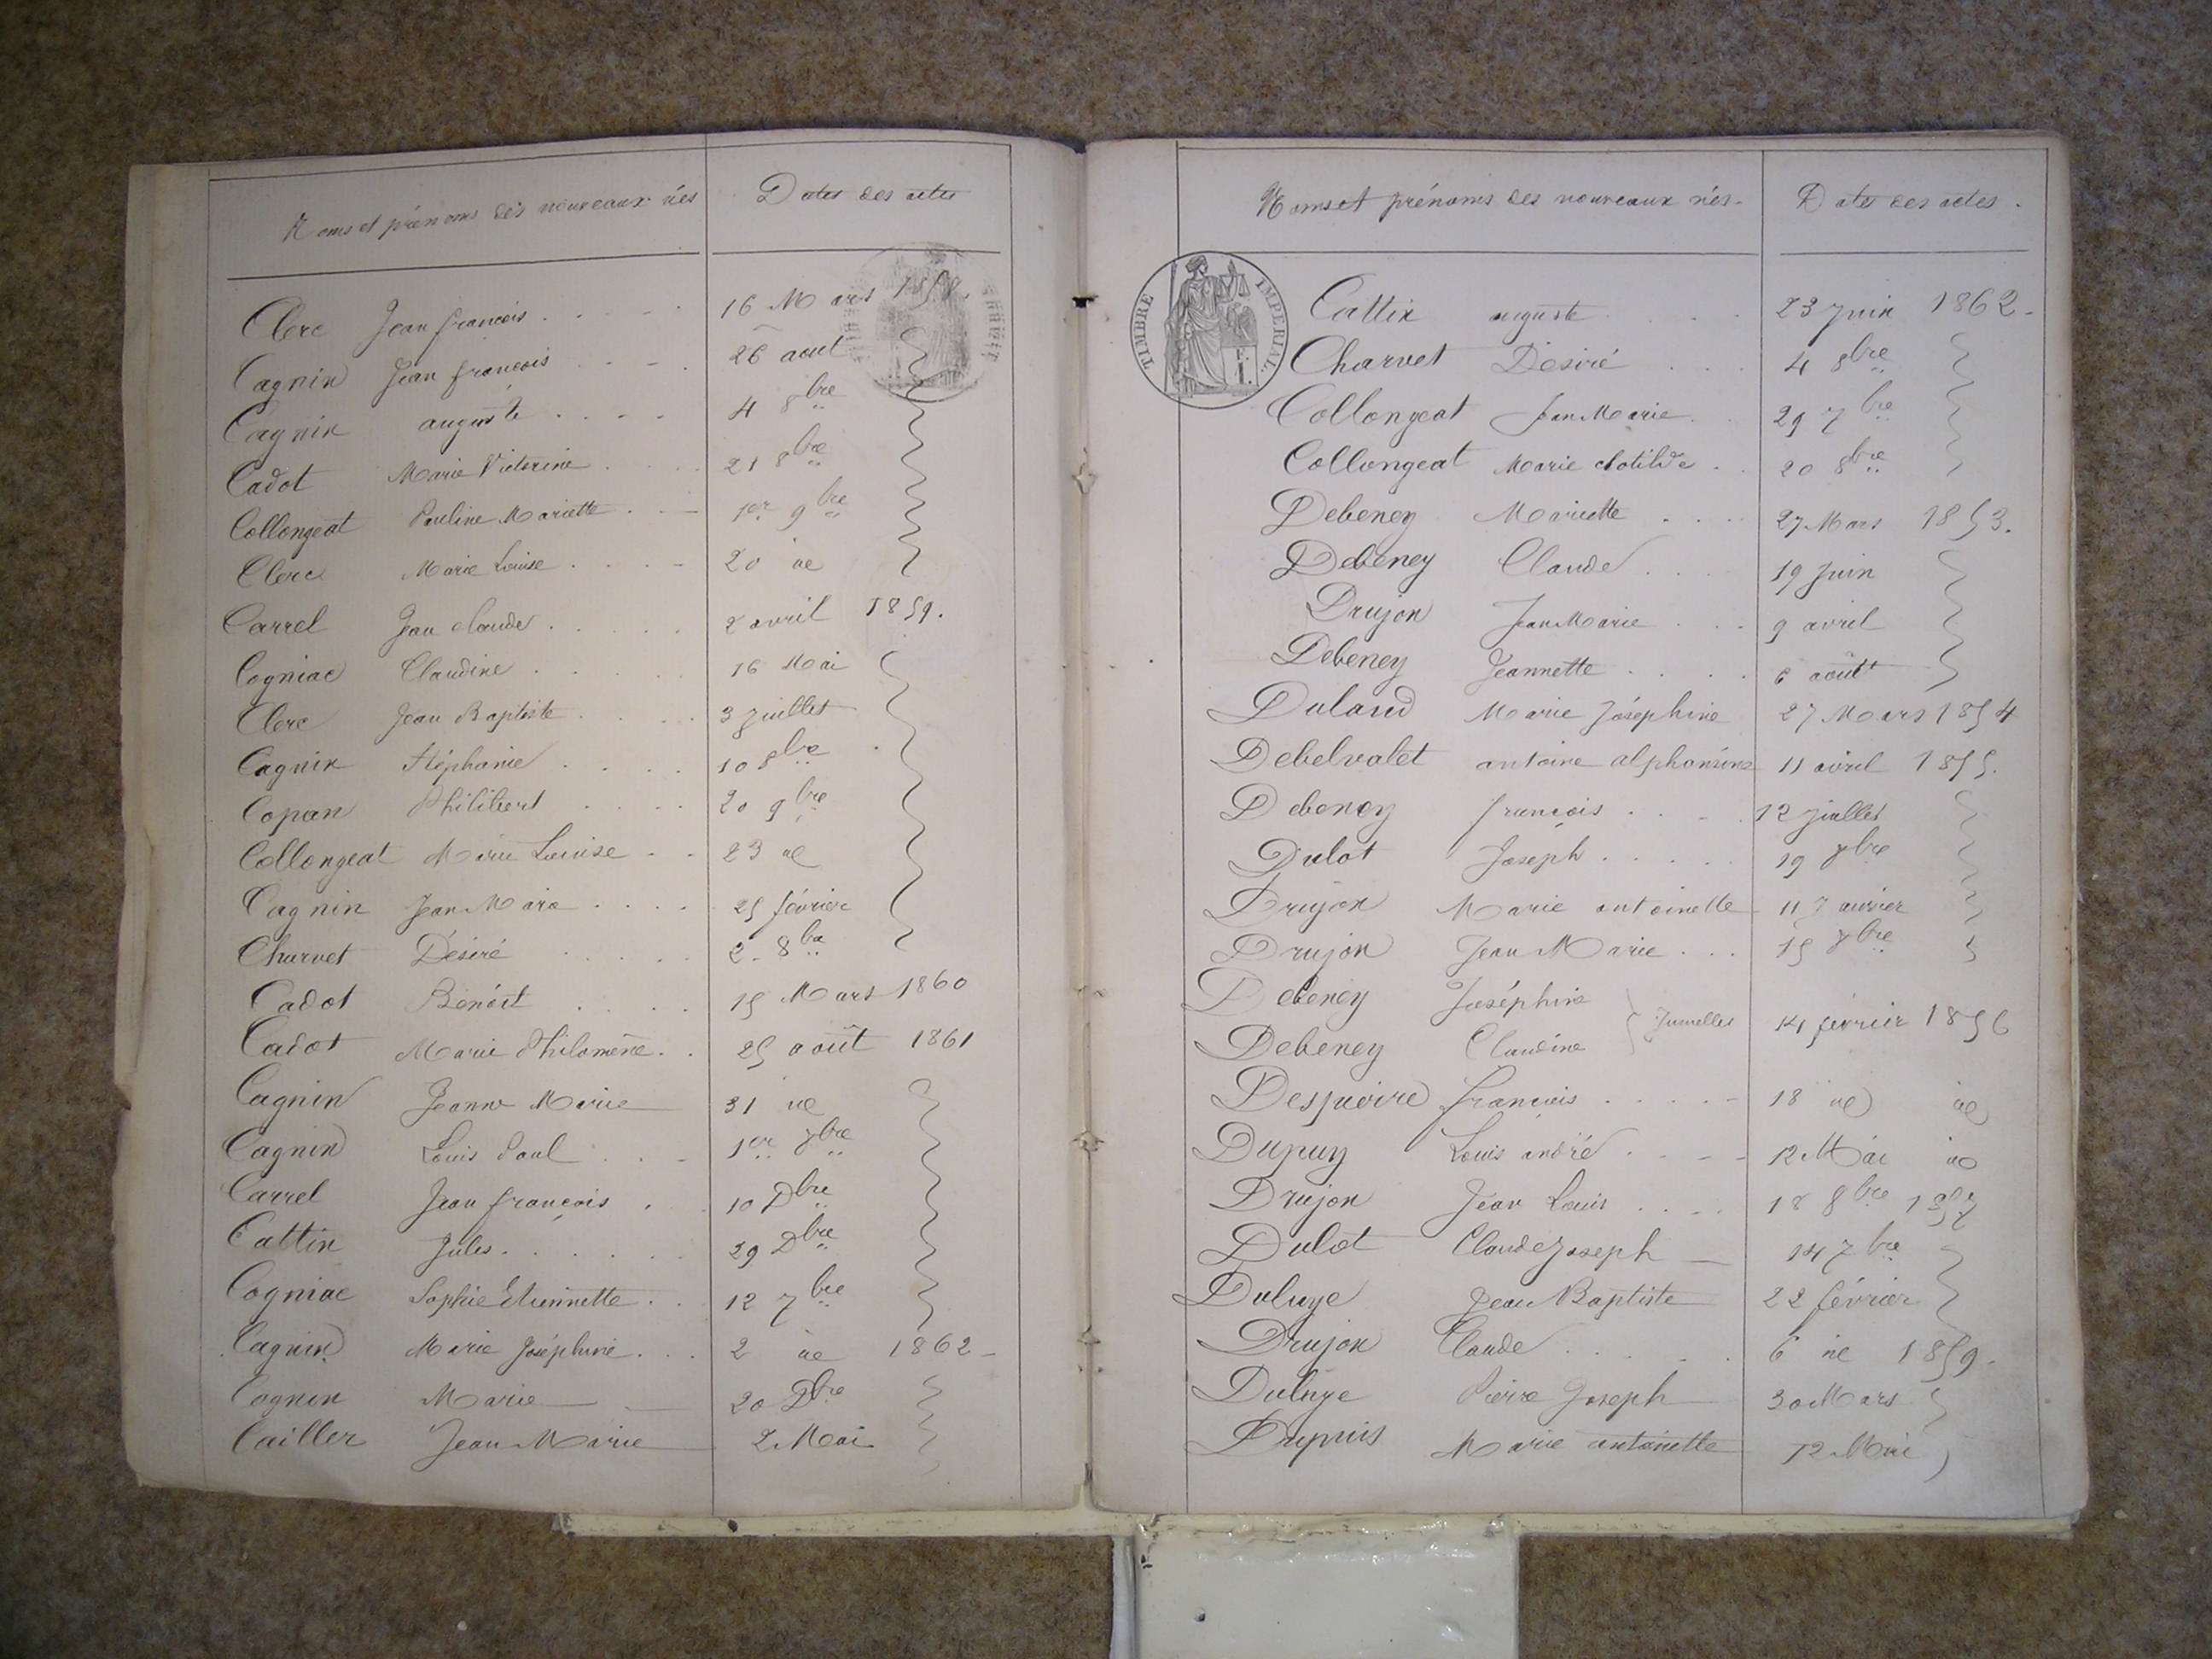 Noms et prénoms des nouveaux nés Dates des actes
Clerc Jean françois 16 Mars 1858.
Cagnin Jean françois 26 aout
Cagnin auguste 4 8bre
Cadot Marie Victorine 21 8bre
Collongeat Pauline Mariette 1er 9bre
Clerc Marie Louise 20 de
Carrel Jean claude 2 avril 1859.
Cogniac Claudine 16 Mai
Clerc Jean Baptiste 3 juillet
Cagnin Stéphanie 10 8bre
Copan Philibert 20 9bre
Collongeat Marie Louise 23 de
Cagnin Jean Marie 25 février
Charvet Désiré 2 8bre
Cadot Benoit 15 Mars 1860
Cadot Marie Philomène 25 août 1861
Cagnin Jeanne Marie 31 de
Cagnin Louis Paul 1er 7bre
Carrel Jean françois 10 Dbre
Cattin Jules 29 Dbre
Cogniac Sophie Etiennette 12 7bre
Cagnin Marie Joséphine 2 de 1862
Cognin Marie 20 Dbre
Cailler Jean Marie 2 Mai
Noms et prénoms des nouveaux nés Date des actes.
TIMBRE IMPERIAL.
Cattin auguste 23 juin 1862
Charvet Désiré 4 8bre
Collongeat Jean Marie 29 7bre
Collongeat Marie clotilde 20 8bre
Debeney Mariette 27 Mars 1853.
Debeney Claude 19 juin
Drujon Jean Marie 9 avril
Debeney Jeannette 6 août
Duland Marie Joséphine 27 Mars 1854
Debelvalet antoine alphonsine 11 avril 1855.
Debeney françois 12 juillet
Dulot Joseph 19 7bre
Drujon Marie antoinette 11 Janvier
Drujon Jean Marie 15 7bre
Debeney Joséphine
Jumelles 14 février 1856
Debeney Claudine
françois 18 de de
Dupuy Louis andré 12 Mai de
Drujon Jean Louis 18 8bre 1857
Dulot Claude Joseph 14 7bre
Duluye Jean Baptiste 22 février
Drujon Claude 6 de 1859.
Duluye Pierre Joseph 30 Mars
Dupuis Marie antoinette 12 Mai